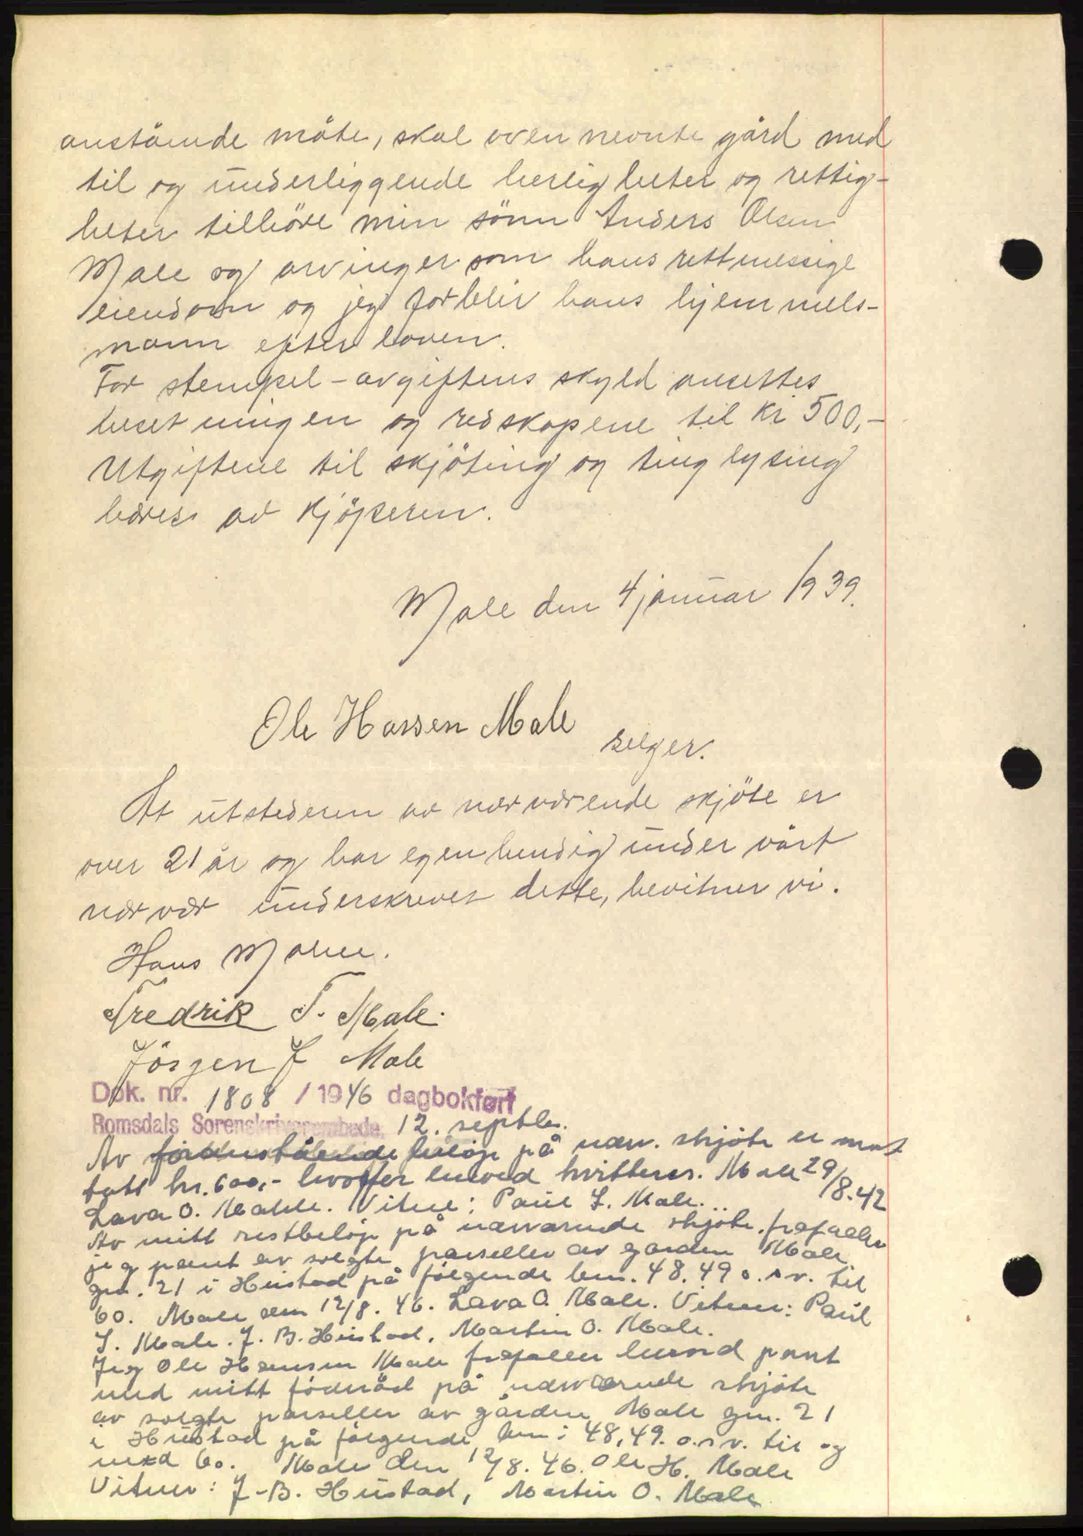 anstående måte, skal oven nevnte gård med
til og underliggende herligheter og rettig-
heter tilhöre min sönn Anders Olsen
Male og arvinger som hans rettmessige
eiendom og jeg forblir hans hjemmels-
mann efter loven.
For stempel-avgiftens skyld ansettes
besetningen og redskapene til kr 500,-
Utgiftene til skjöting og tinglysing
bæres av kjöperen.
Male den 4 januar 1939.
Ole Hansen Male
selger.
At utstederen av nærværende skjöte er
over 21 år og har egenhendig under vårt
nærvær underskrevet dette, bevitner vi.
Hans Malen.
Fredrik T. Male.
Jörgen J Male
Dok. nr. 1808 / 1946 dagbokført
Romsdals Sorenskriverembede 12. septbr.
Av foranstående beløp på nærv. skjøte er mot
tatt kr. 600,- hvorfor herved kvitteres. Male 29/8-42
Lava O. Male. Vitne: Paul S. Male.
Av mitt restbeløp på nærværende skjøte frafaller
jeg pant av solgte parseller av garden Male
gnr. 21 i Hustad på følgende bnr. 48. 49 o.s.v. til
60. Male den 12/8. 46. Lava O. Male. Vitner: Paul
S. Male. J. B. Hustad, Martin O. Male.
Jeg Ole Hansen Male frafaller herved pant
med mitt föderåd på nærværende skjøte
av solgte parseller av gården Male gnr. 21
i Hustad på følgende bnr: 48, 49. o.s.v. til og
med 60. Male den 12/8. 46. Ole H. Male
Vitner: J. B. Hustad, Martin O. Male